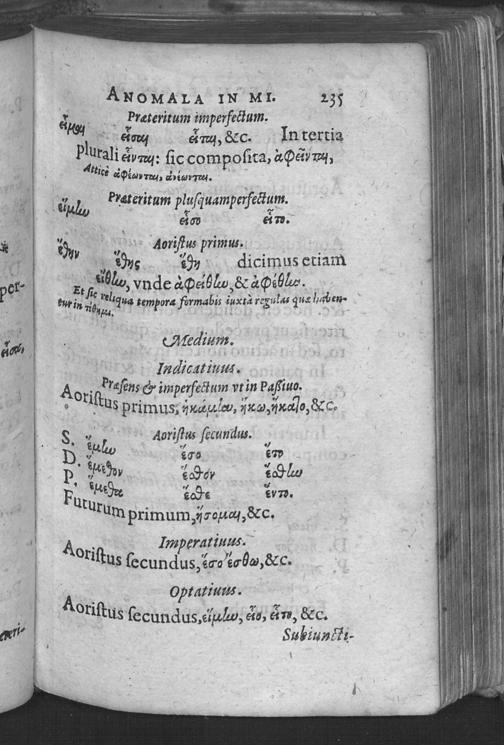 ANOMALA IN MI. 235
Præteritum imperfectum.
εἶμαι εἶσαι εἶται, &c. In tertia
plurali εἶνται: sic composita, ἀφεῖνται,
Atticè ἀφέωνται, ἀνέωνται.
Præteritum plusquamperfectum.
εἵμlω εἶσο εἶτο.
Aoristus primus.
ἕθην ἕθης ἕθη dicimus etiam
εἵθlω, vnde ἀφείθlω, & ἀφέθlω.
Et sic reliqua tempora formabis iuxtà regulas quæ haben-
tur in τίθημι.
Medium.
Indicatiuus.
Præsens & imperfectum vt in Passiuo.
Aoristus primus, ἡκάμlω, ἥκω, ἥκατο, &c.
Aoristus secundus.
S. ἕμlω ἕσο ἕτο
D. ἕμεθον ἕσθον ἕσθlω
P. ἕμεθα ἕσθε ἕντο.
Futurum primum, ἥσομαι, &c.
Imperatiuus.
Aoristus secundus, ἕσο ἕσθω, &c.
Optatiuus.
Aoristus secundus, εἵμlω, εἷο, εἷτο, &c.
Subiuncti-